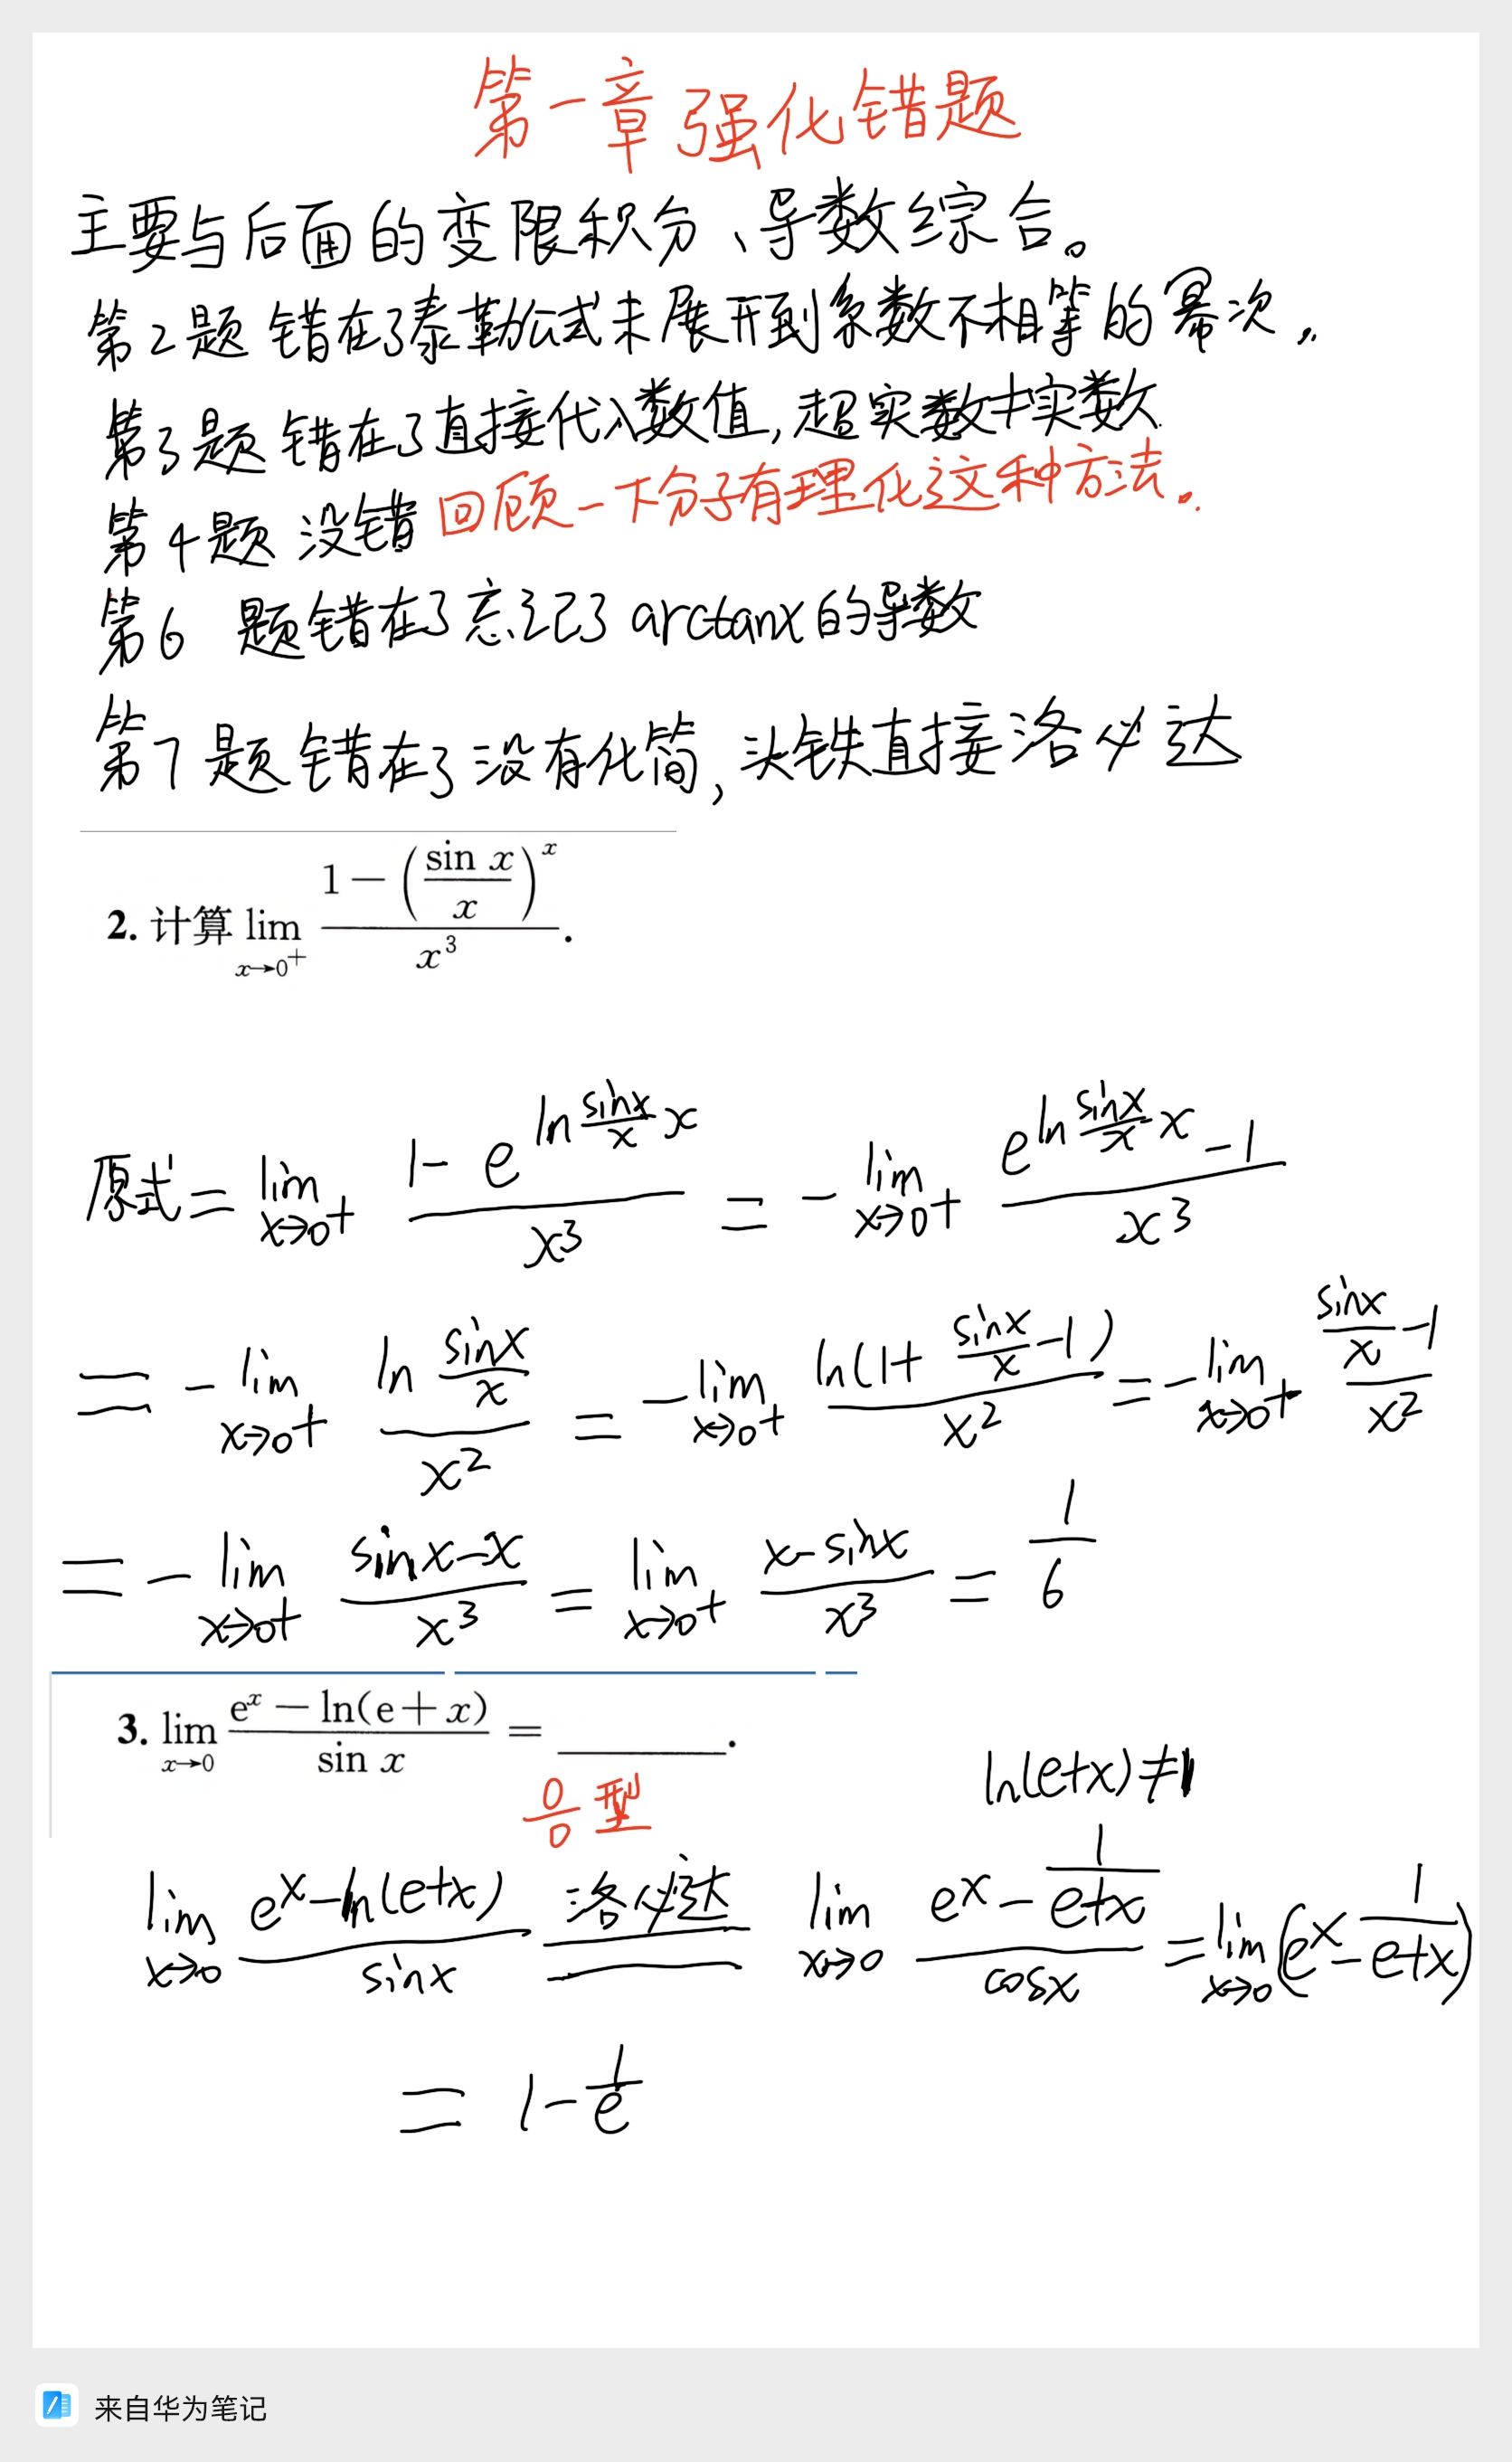 第一章强化错题
主要与后面的变限积分、导数综合。
第2题 错在了泰勒公式未展开到系数不相等的幂次.
第3题 错在了直接代入数值,超实数≠实数.
第4题 没错 回顾一下分子有理化这种方法。
第6 题错在了忘记了 arctanx的导数
第7题错在了没有化简,头铁直接洛必达
2. 计算 lim_{x→0^+} (1-(sin x/x)^x)/x^3.
原式 = lim_{x→0+} (1-e^{ln(sinx/x) x})/x^3 = - lim_{x→0+} (e^{ln(sinx/x) x}-1)/x^3
= - lim_{x→0+} (ln(sinx/x))/x^2 = - lim_{x→0+} ln(1+sinx/x-1)/x^2 = - lim_{x→0+} (sinx/x-1)/x^2
= - lim_{x→0+} (sinx-x)/x^3 = lim_{x→0+} (x-sinx)/x^3 = 1/6
3. lim_{x→0} (e^x-ln(e+x))/sin x = ______.
0/0 型
ln(e+x)≠1
lim_{x→0} (e^x-ln(e+x))/sinx 洛必达 = lim_{x→0} (e^x-1/(e+x))/cosx = lim_{x→0} (e^x-1/(e+x))
= 1-1/e
来自华为笔记